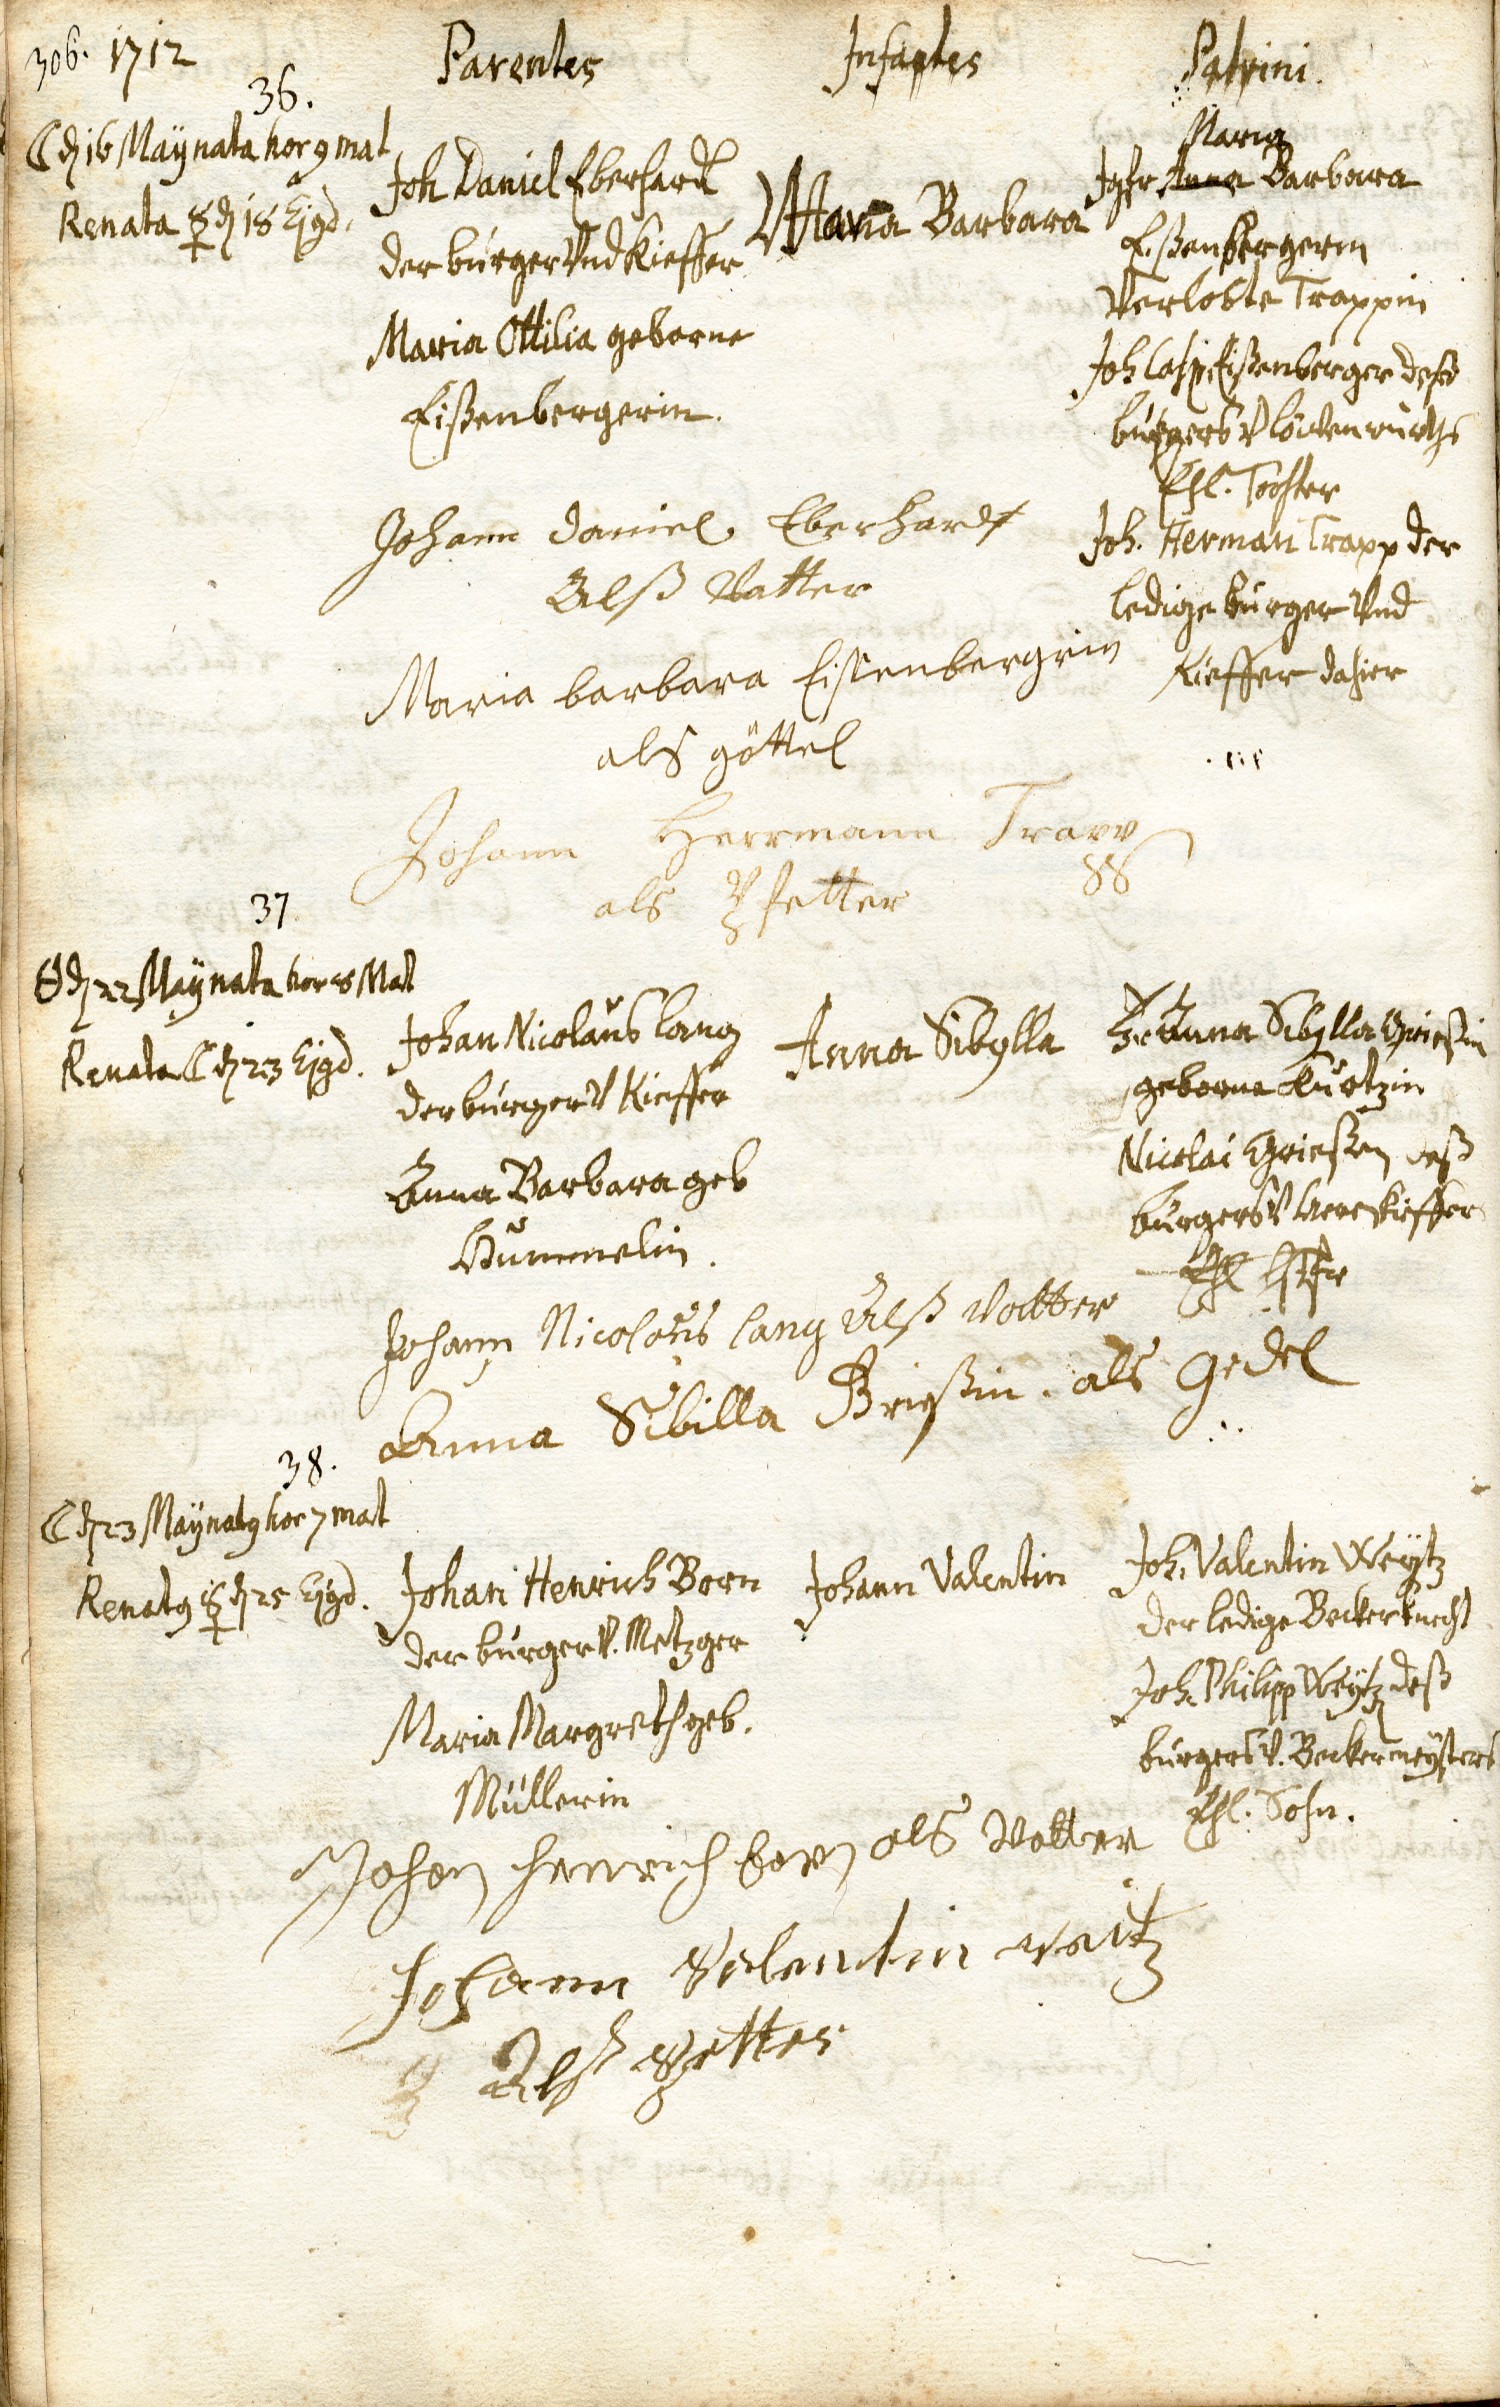 306. 1712 Parentes Infantes Patrini.
36.
☾ d 16 Maÿ nata hor 9 mat
Renata ☿ d 18 Ejgd.
Joh Daniel Eberhardt
der burger Vnd Kieffer
Maria Ottilia geborne
Eißenbergerin.
Maria Barbara
Maria
Jgfr Anna Barbara
Eißenbergerin
Verlobte Trappin
Joh Casp Eißenberger deß
burgers V Löwenwürths
Ehl. Tochter
Joh. Herman Trapp der
ledige burger Vnd
Kieffer dahier
Johann Daniel Eberhardt
Alß Vatter
Maria barbara Eissenbergrin
als göttel
Johann Herrmann Trapp
als Pfetter
37.
☉ d 22 Maÿ nata hor 8 Mat
Renata ☾ d 23 Ejgd.
Johan Nicolaus Lang
der burger V Kieffer
Anna Barbara geb
Hummelin.
Anna Sibylla
Fr Anna Sibylla Grießin
geborne Kurtzin
Nicolai Grießen deß
burgers V Kieffer
Ehl
Johann Nicolaus Lang Alß Vatter
Anna Sibilla Brießin. als Gedel
38.
☾ d 23 Maÿ natq hor 7 mat
Renatq ☿ d 25 Ejgd.
Johan Henrich Born
der burger V. Metzger
Maria Margreth geb.
Müllerin
Johann Valentin
Joh. Valentin Weÿtz
der ledige Beckerknecht
Joh. Philipp Weÿtz deß
burgers V. Beckermeÿsters
Ehl. Sohn.
Johan henrich born als Vatter
Johann Valentin waitz
Alß Petter